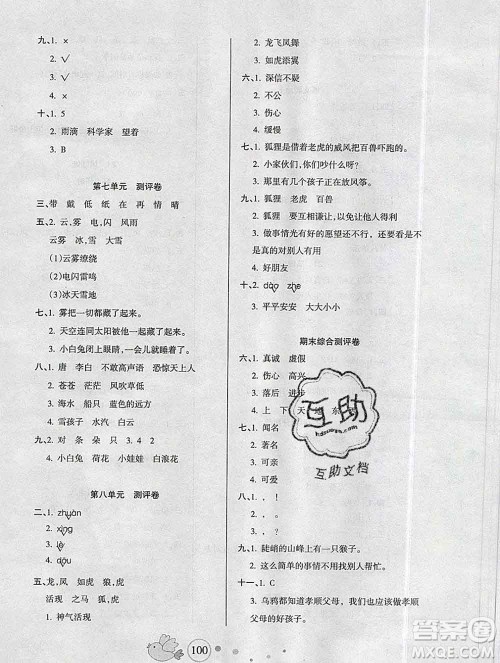 九、1. ×
2. √
3. √
4. ×
十、1. 5
2. 雨滴 科学家 望着
3. B
第七单元 测评卷
三、带 戴 低 纸 在 再 情 晴
五、2. 云,雾 电,闪 风雨
云雾 冰,雪 大雪
(1)云雾缭绕
(2)电闪雷鸣
(3)冰天雪地
七、1. 雾把一切都藏了起来。
2. 天空连同太阳被他一起藏了起来。
3. 小白兔割草,一会儿就割了一大堆。
八、1. 唐 李白 不敢高声语 恐惊天上人
2. 苍苍 茫茫 风吹草动
3. 海水 船只 蓝色的远方
4. 雪孩子 水汽 白云
九、2. 对 条 朵 只 3. 4 2
4. 小白兔 荷花 小娃娃 白莲花
第八单元 测评卷
二、1. zhuàn
2. xìng
3. lè
4. dǒu
五、龙,凤 如虎 狼,虎
活现 之马 虎,虎
1. 神气活现
2. 龙飞凤舞
3. 如虎添翼
六、1. 深信不疑
2. 不公
3. 伤心
4. 缓慢
七、1. 狐狸是借着老虎的威风把百兽吓跑的。
2. 小家伙们,你们吵什么呀?
3. 草地上有几个孩子正在放风筝。
九、1. 狐狸 老虎
2. 狐狸 要互相谦让,以和为贵
3. 做事情光有好的愿望还不行,还要看是不
是真的对别人有用
4. 好朋友
十、2. dǎo zhe
3. 平平安安 大大小小
期末综合测评卷
六、1. 真诚 虚假
2. 伤心 高兴
3. 落后 进步
4. 上 下 天
七、1. 闻名
2. 著名
3. 可亲
4. 可爱
八、1. , 。
2. , 。
九、1. 陡峭的山峰上有一只猴子。
2. 这么简单的事情不用找别人帮忙。
十一、1. C
3. 乌鸦都知道孝顺父母,我们就更应该孝顺
父母的好孩子。
100
互助
互助文档
答案圈
MXQE.COM